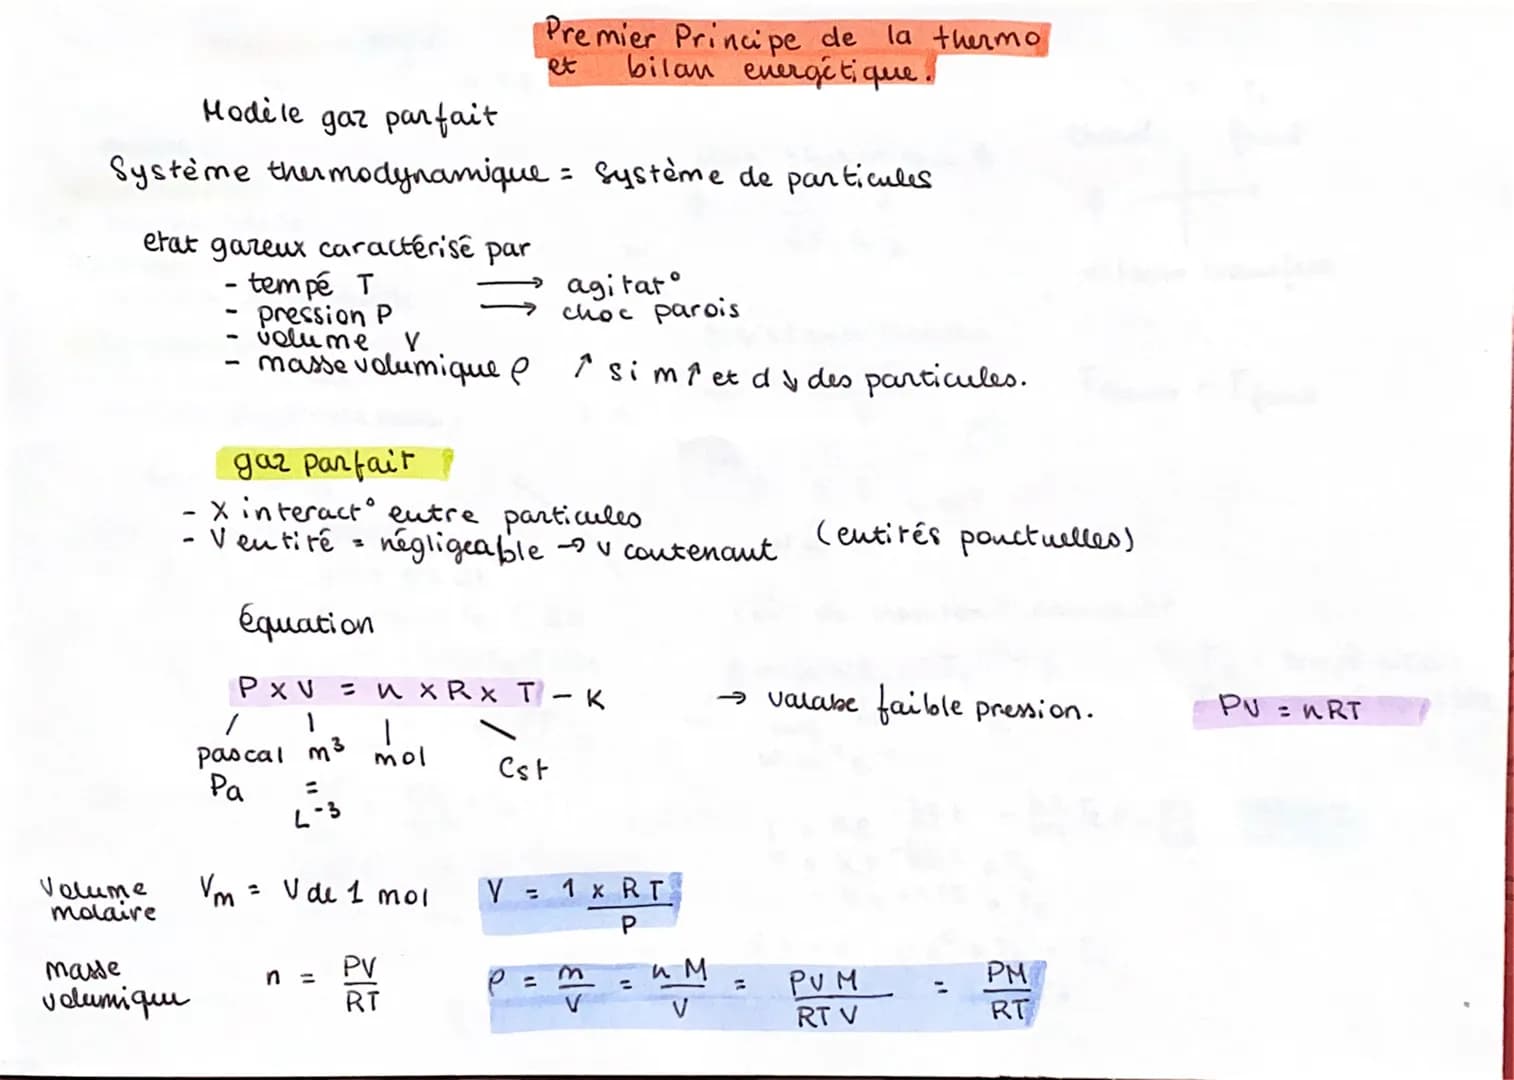 Premier Principe de la thermo
et bilan energétique.
Modèle gaz parfait
Système thermodynamique = Système de particules
etat gazeux caractérisé par
- tempé T → agitat°
- pression P → choc parois
- volume V
- masse volumique ρ ↑ si m↑ et d ↓ des particules.
gaz parfait
- X interact° entre particules
- V entité = négligeable → V contenant (entités ponctuelles)
équation
P x V = n x R x T - K → valabe faible pression. PV = nRT
pascal m³ mol Cst
Pa =
L⁻³
Volume molaire Vm = V de 1 mol V = 1 x RT / P
masse volumique n = PV / RT ρ = m / V = n M / V = PVM / RTV = PM / RT